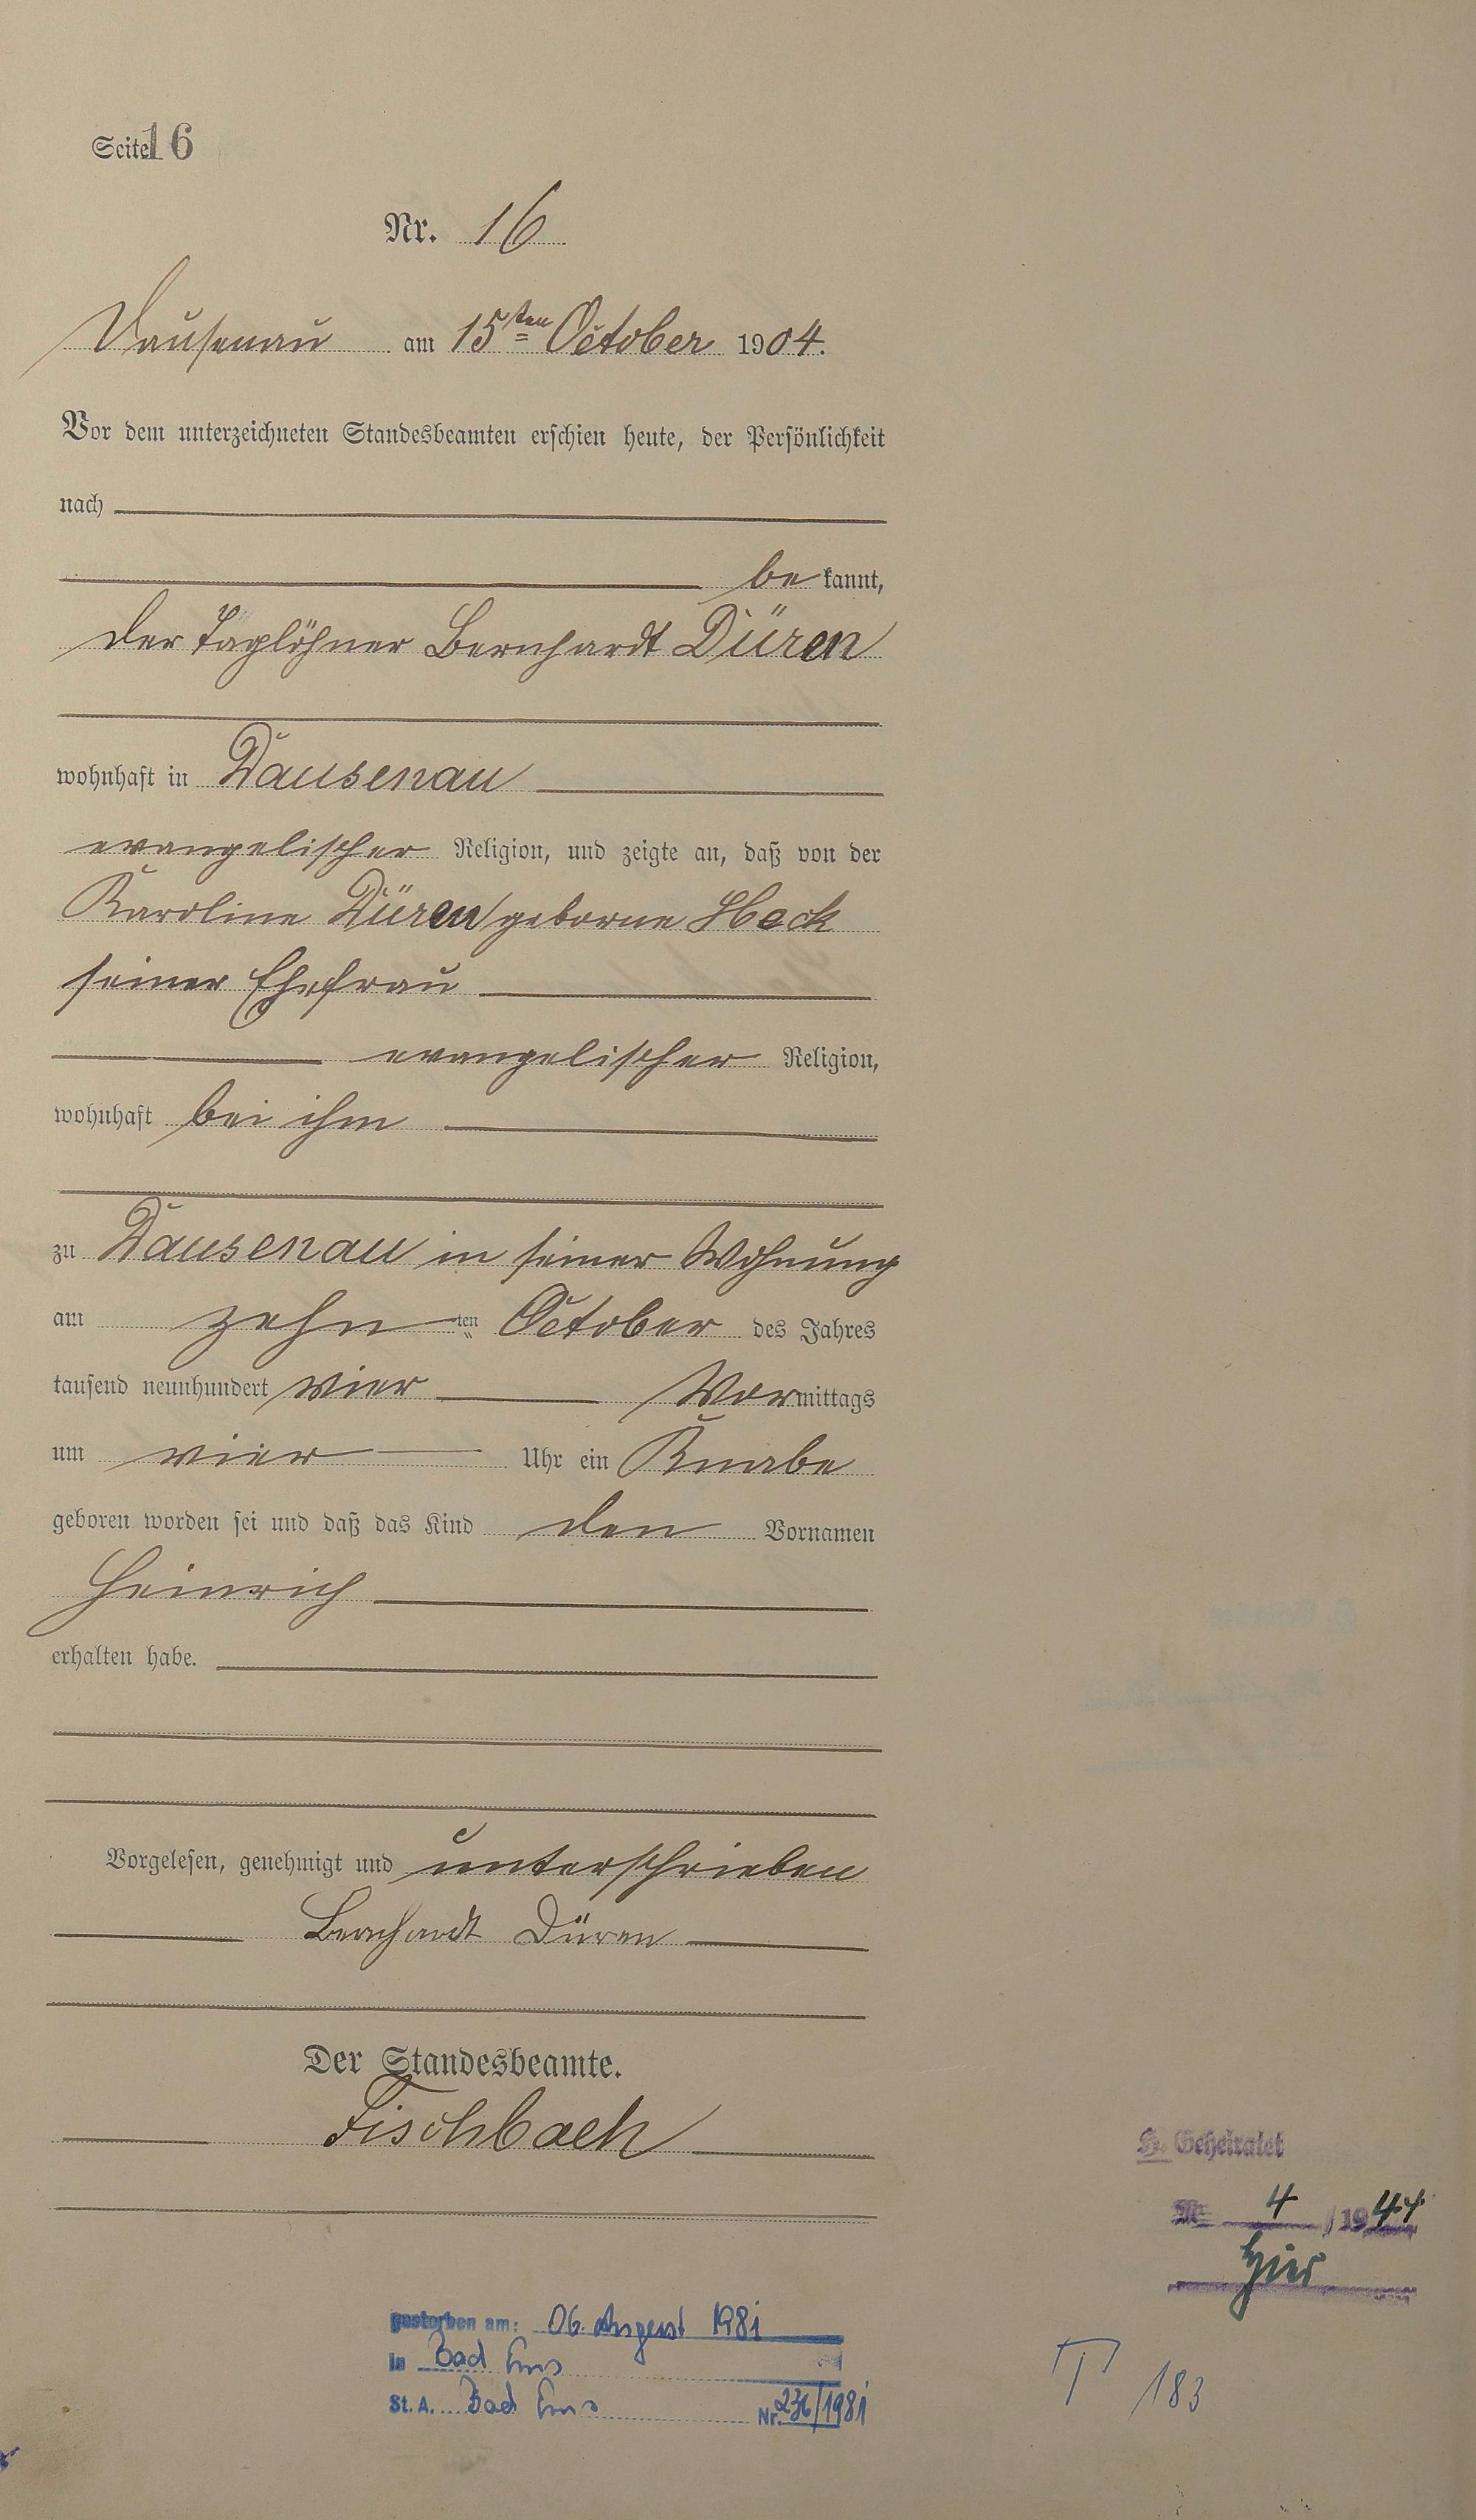 Seite 16
Nr. 16
Dausenau am 15ten October 1904.
Vor dem unterzeichneten Standesbeamten erschien heute, der Persönlichkeit
nach
be kannt,
der Taglöhner Bernhardt Düren
wohnhaft in Dausenau
evangelischer Religion, und zeigte an, daß von der
Karoline Düren geborne Heck
seiner Ehefrau
evangelischer Religion,
wohnhaft bei ihm
zu Dausenau in seiner Wohnung
am zehn ten October des Jahres
tausend neunhundert vier Vormittags
um vier Uhr ein Knabe
geboren worden sei und daß das Kind den Vornamen
Heinrich
erhalten habe.
Vorgelesen, genehmigt und unterschrieben
Bernhardt Düren
Der Standesbeamte.
Fischbach
H. Geheiratet
Nr. 4 / 1944
hier
gestorben am: 06. August 1981
in Bad Ems
St. A. Bad Ems Nr. 236/1981
T 183